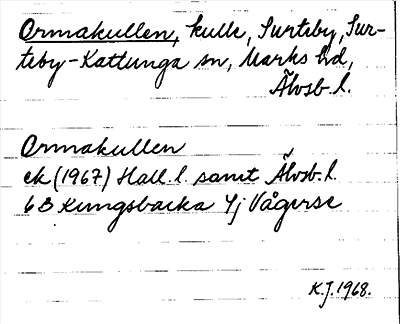 Ormakullen, kulle, Surteby, Sur-
teby-Kattunga sn, Marks hd,
Älvsb. l.
Ormakullen
ek (1967) Hall. l. samt Älvsb. l.
6 B Kungsbacka 4j Vågerse
K.J. 1968.